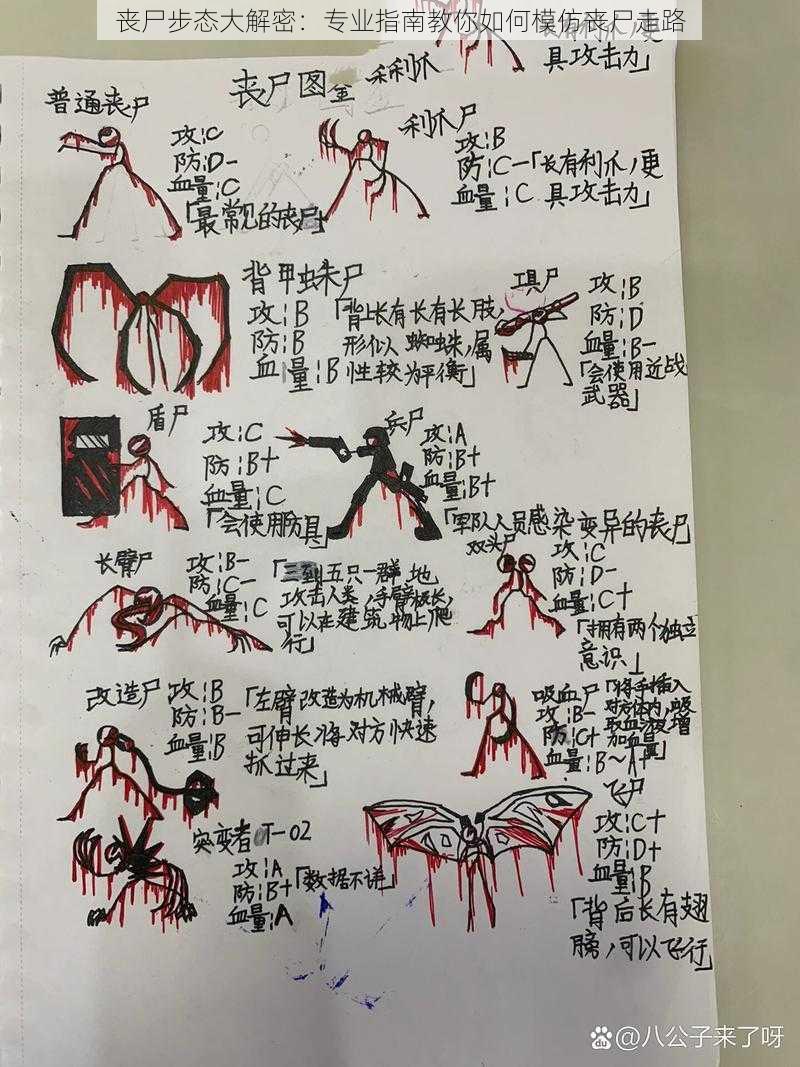 丧尸步态大解密：专业指南教你如何模仿丧尸走路
具攻击力」
丧尸图鉴
利爪
普通丧尸
攻:C
防:D-
血量:C
「最常见的丧尸」
利爪尸
攻:B
防:C-
血量:C
「长有利爪,更
具攻击力」
背甲蛛尸
攻:B
防:B
血量:B
「背上长有长有长肢,
形似人蜘蛛,属
性较为平衡」
工具尸
攻:B
防:D
血量:B-
「会使用近战
武器」
盾尸
攻:C
防:B+
血量:C
「会使用防具」
兵尸
攻:A
防:B+
血量:B+
「军队人员感染变异的丧尸」
长臂尸
攻:B-
防:C-
血量:C
「三到五只一群地
攻击人类,手臂极长,
可以在建筑物上爬
行」
双头尸
攻:C
防:D-
血量:C+
「拥有两个独立
意识」
改造尸
攻:B
防:B-
血量:B
「左臂改造为机械臂,
可伸长,将对方快速
抓过来」
吸血尸
攻:B-
防:C+
血量:B~A+
「将手插入
对方体内,吸
取血液增
加血量」
突变者 T-02
攻:A
防:B+
血量:A
「数据不详」
飞尸
攻:C+
防:D+
血量:B
「背后长有翅
膀,可以飞行」
Bai
du
@八公子来了呀